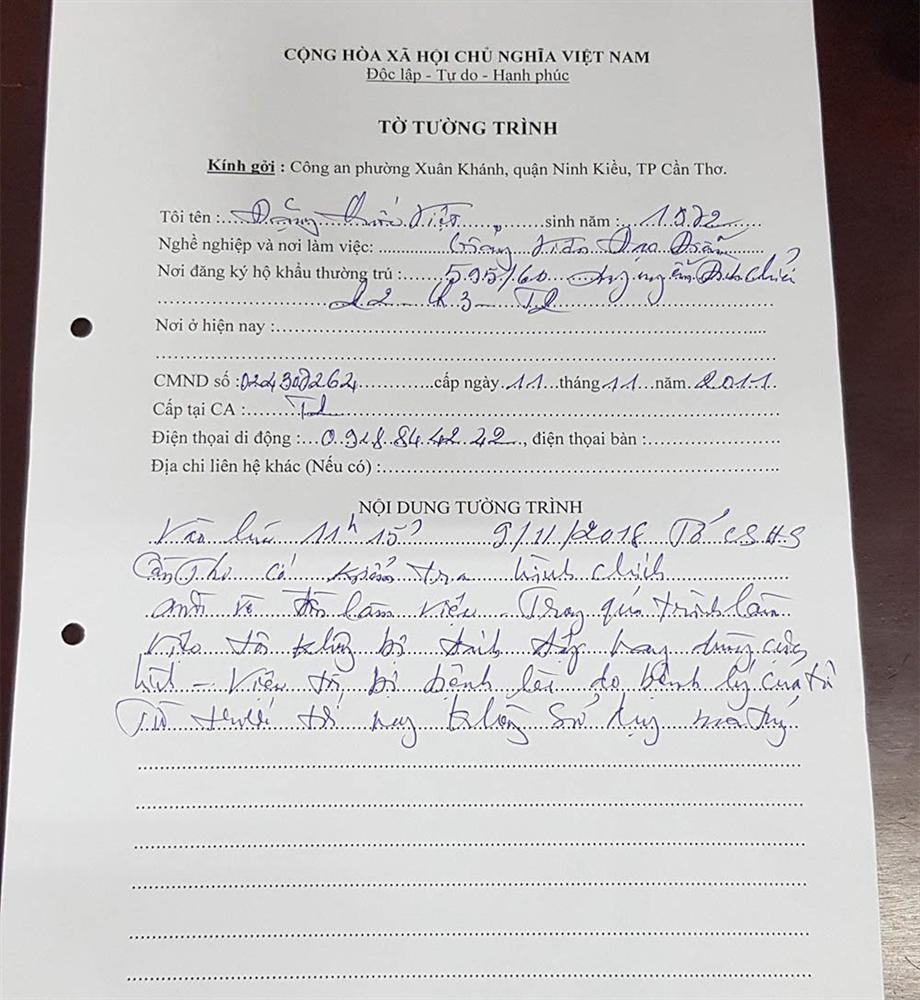 CỘNG HÒA XÃ HỘI CHỦ NGHĨA VIỆT NAM
Độc lập - Tự do - Hạnh phúc
TỜ TƯỜNG TRÌNH
Kính gởi : Công an phường Xuân Khánh, quận Ninh Kiều, TP Cần Thơ.
Tôi tên : Đặng Quốc Việt sinh năm : 1972
Nghề nghiệp và nơi làm việc:
Nơi đăng ký hộ khẩu thường trú : 595/60 Nguyễn Đình Chiểu
Nơi ở hiện nay :
CMND số : cấp ngày 11 tháng 11 năm 2011
Cấp tại CA :
Điện thoại di động : 0.918.84.42.42, điện thoại bàn :
Địa chỉ liên hệ khác (Nếu có) :
NỘI DUNG TƯỜNG TRÌNH
Vào lúc 11h 15' 9/11/2018 Tổ CSHS
Cần Thơ có kiểm tra hành chính
mời về làm việc. Trong quá trình làm
việc tôi không bị đánh đập hay dùng cực
hình - Việc tôi bị bệnh là do bệnh lý của tôi
Từ trước tới nay không sử dụng ma túy